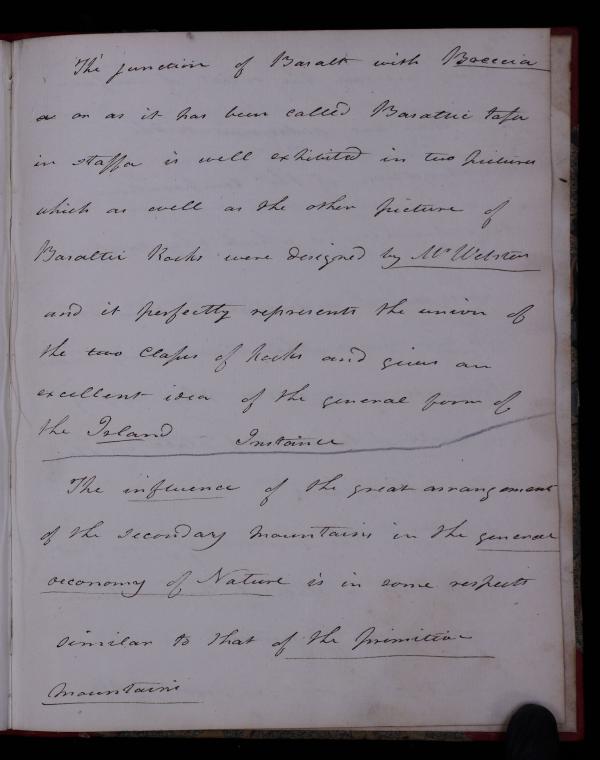 The junction of Basalt with Breccia
or as it has been called Basaltic tufa
in Staffa is well exhibited in two pictures
which as well as the other picture of
Basaltic Rocks were designed by Mr Webster
and it perfectly represents the union of
the two Classes of Rocks and gives an
excellent idea of the general form of
the Island Instance
The influence of the great arrangement
of the secondary mountains in the general
oeconomy of Nature is in some respects
similar to that of the primitive
mountains